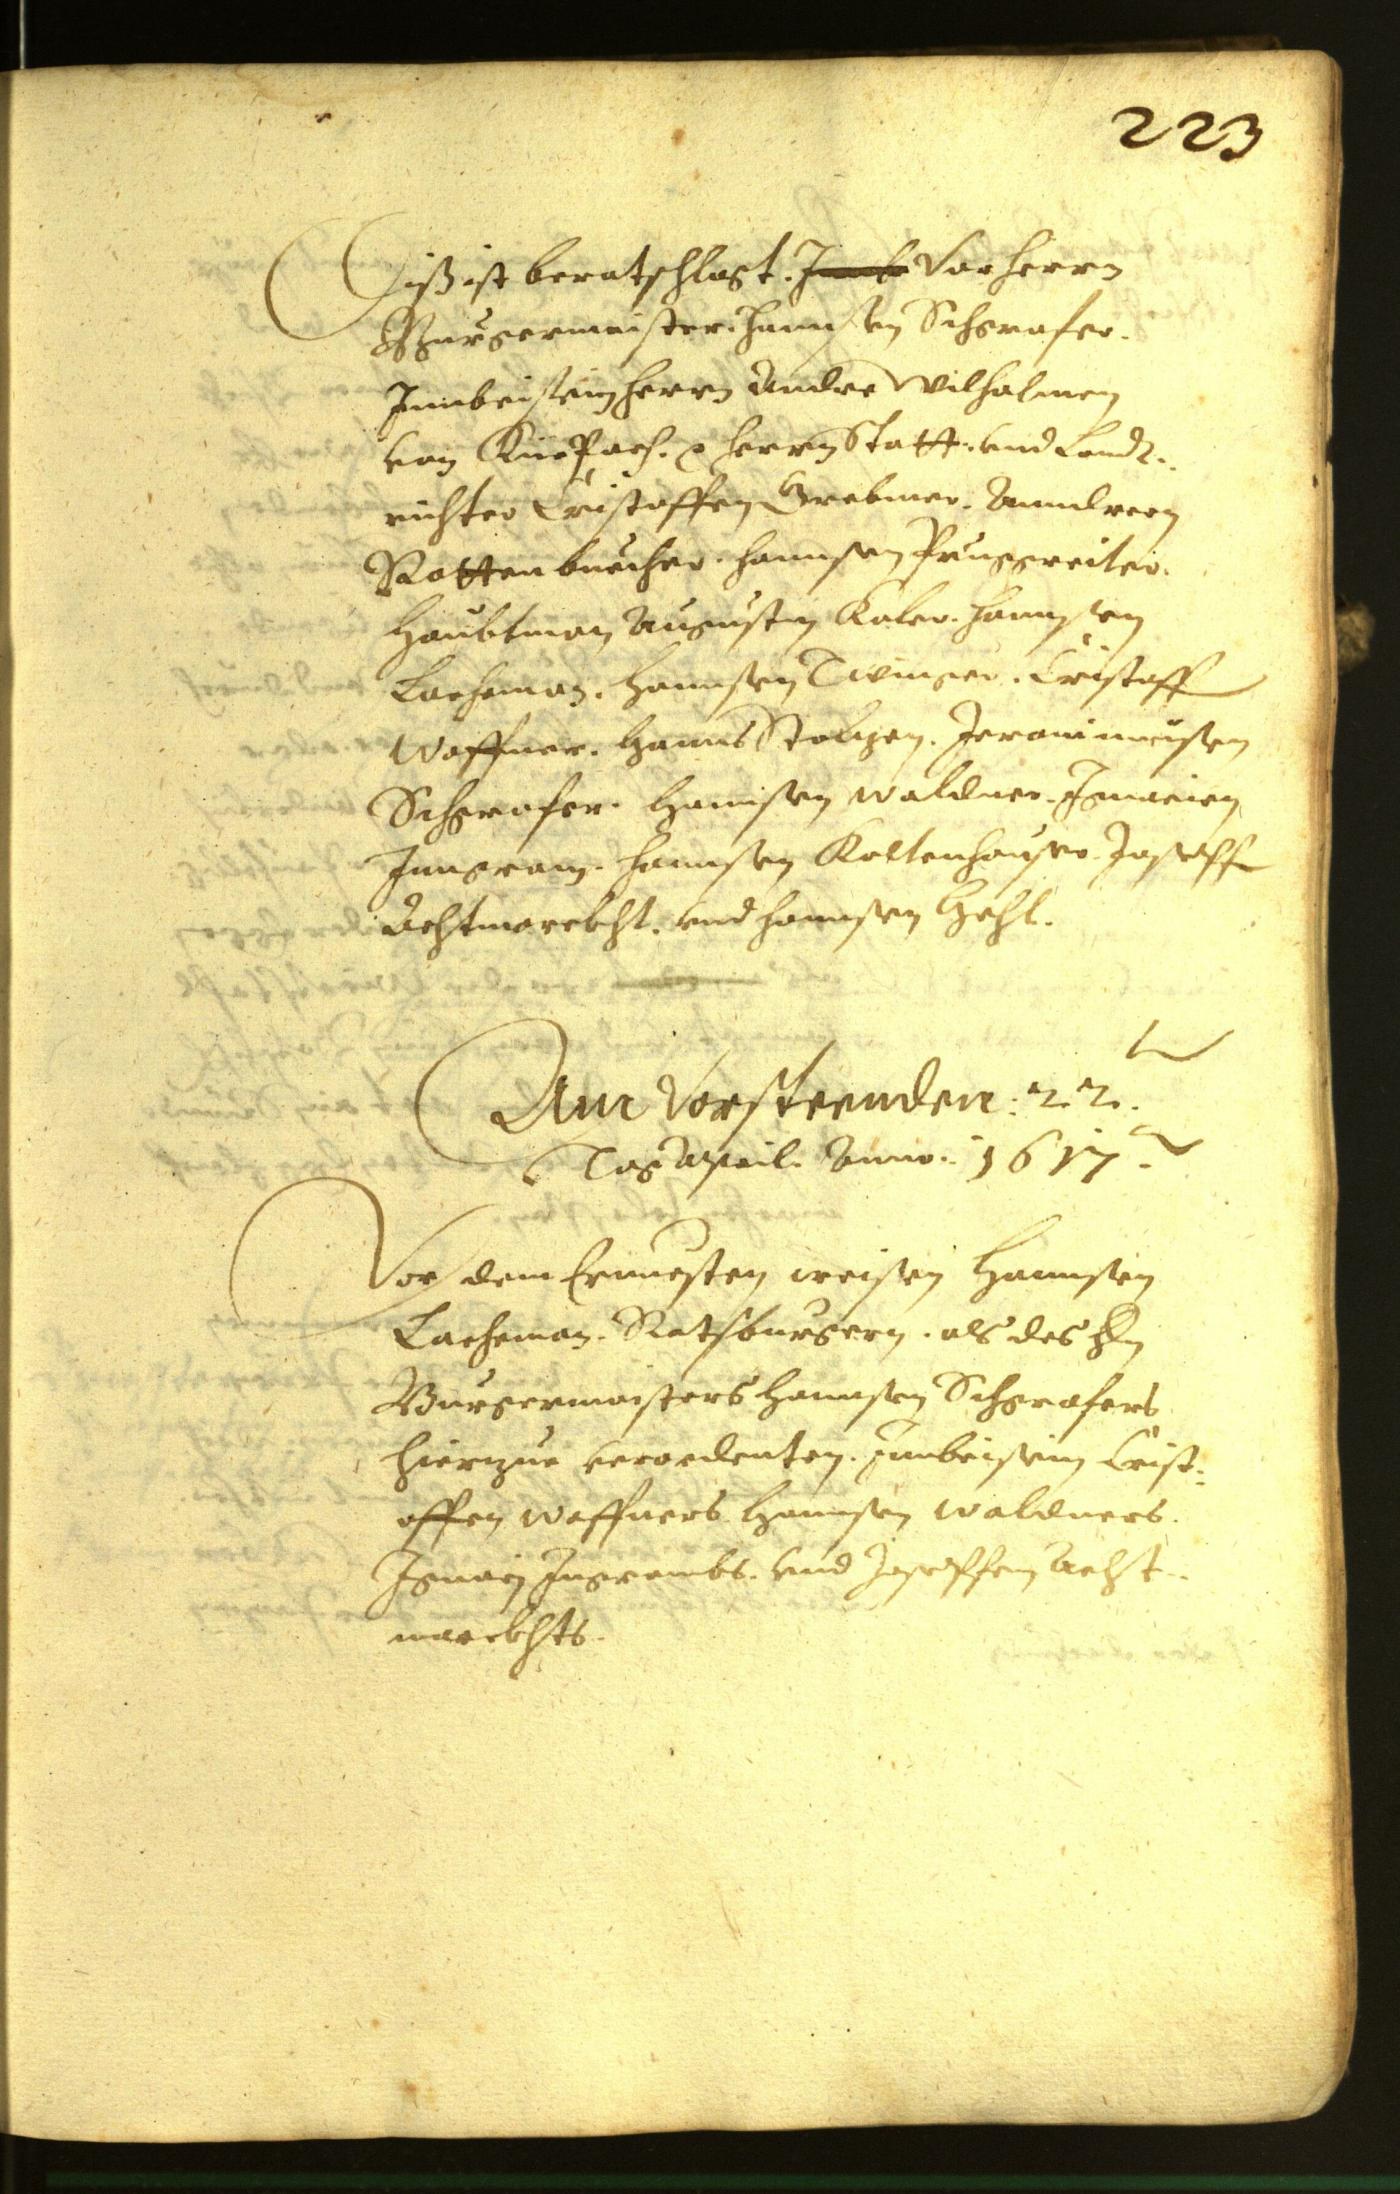 223
Diß ist beratschlagt. Vor herrn
Burgermaister Hannsen Schgrafer.
Innbeisein herrn Andre Wilhalmen
von Kürpach. herrn Statt: vnd Landt:
richter Cristoffen Grebmer. Anndreen
Rottenbuecher. Hannsen Pruggreiter.
Haubtman Augustin Kaler. Hannsen
Lachman. Hannsen Twinger. Cristoff
Waffner. Hanns Stolzen. Jeronimusen
Schgrafer. Hannsen Waldner. Ignacien
Inngram. Hannsen Kaltenhauser. Joseff
Achtmarckht. vnd Hannsen Hehl.
Am Vorsteenden: 22.
Tag April. Anno: 1617.
Vor dem Ernuesten weisen Hannsen
Lachman. Ratsburgern. als des Hn
Burgermaisters Hannsen Schgrafers
hierzue verordenten. Innbeisein Crist:
offen Waffners Hannsen Waldners.
Ignaci Ingrambs. vnd Joseffen Acht:
marckhts.